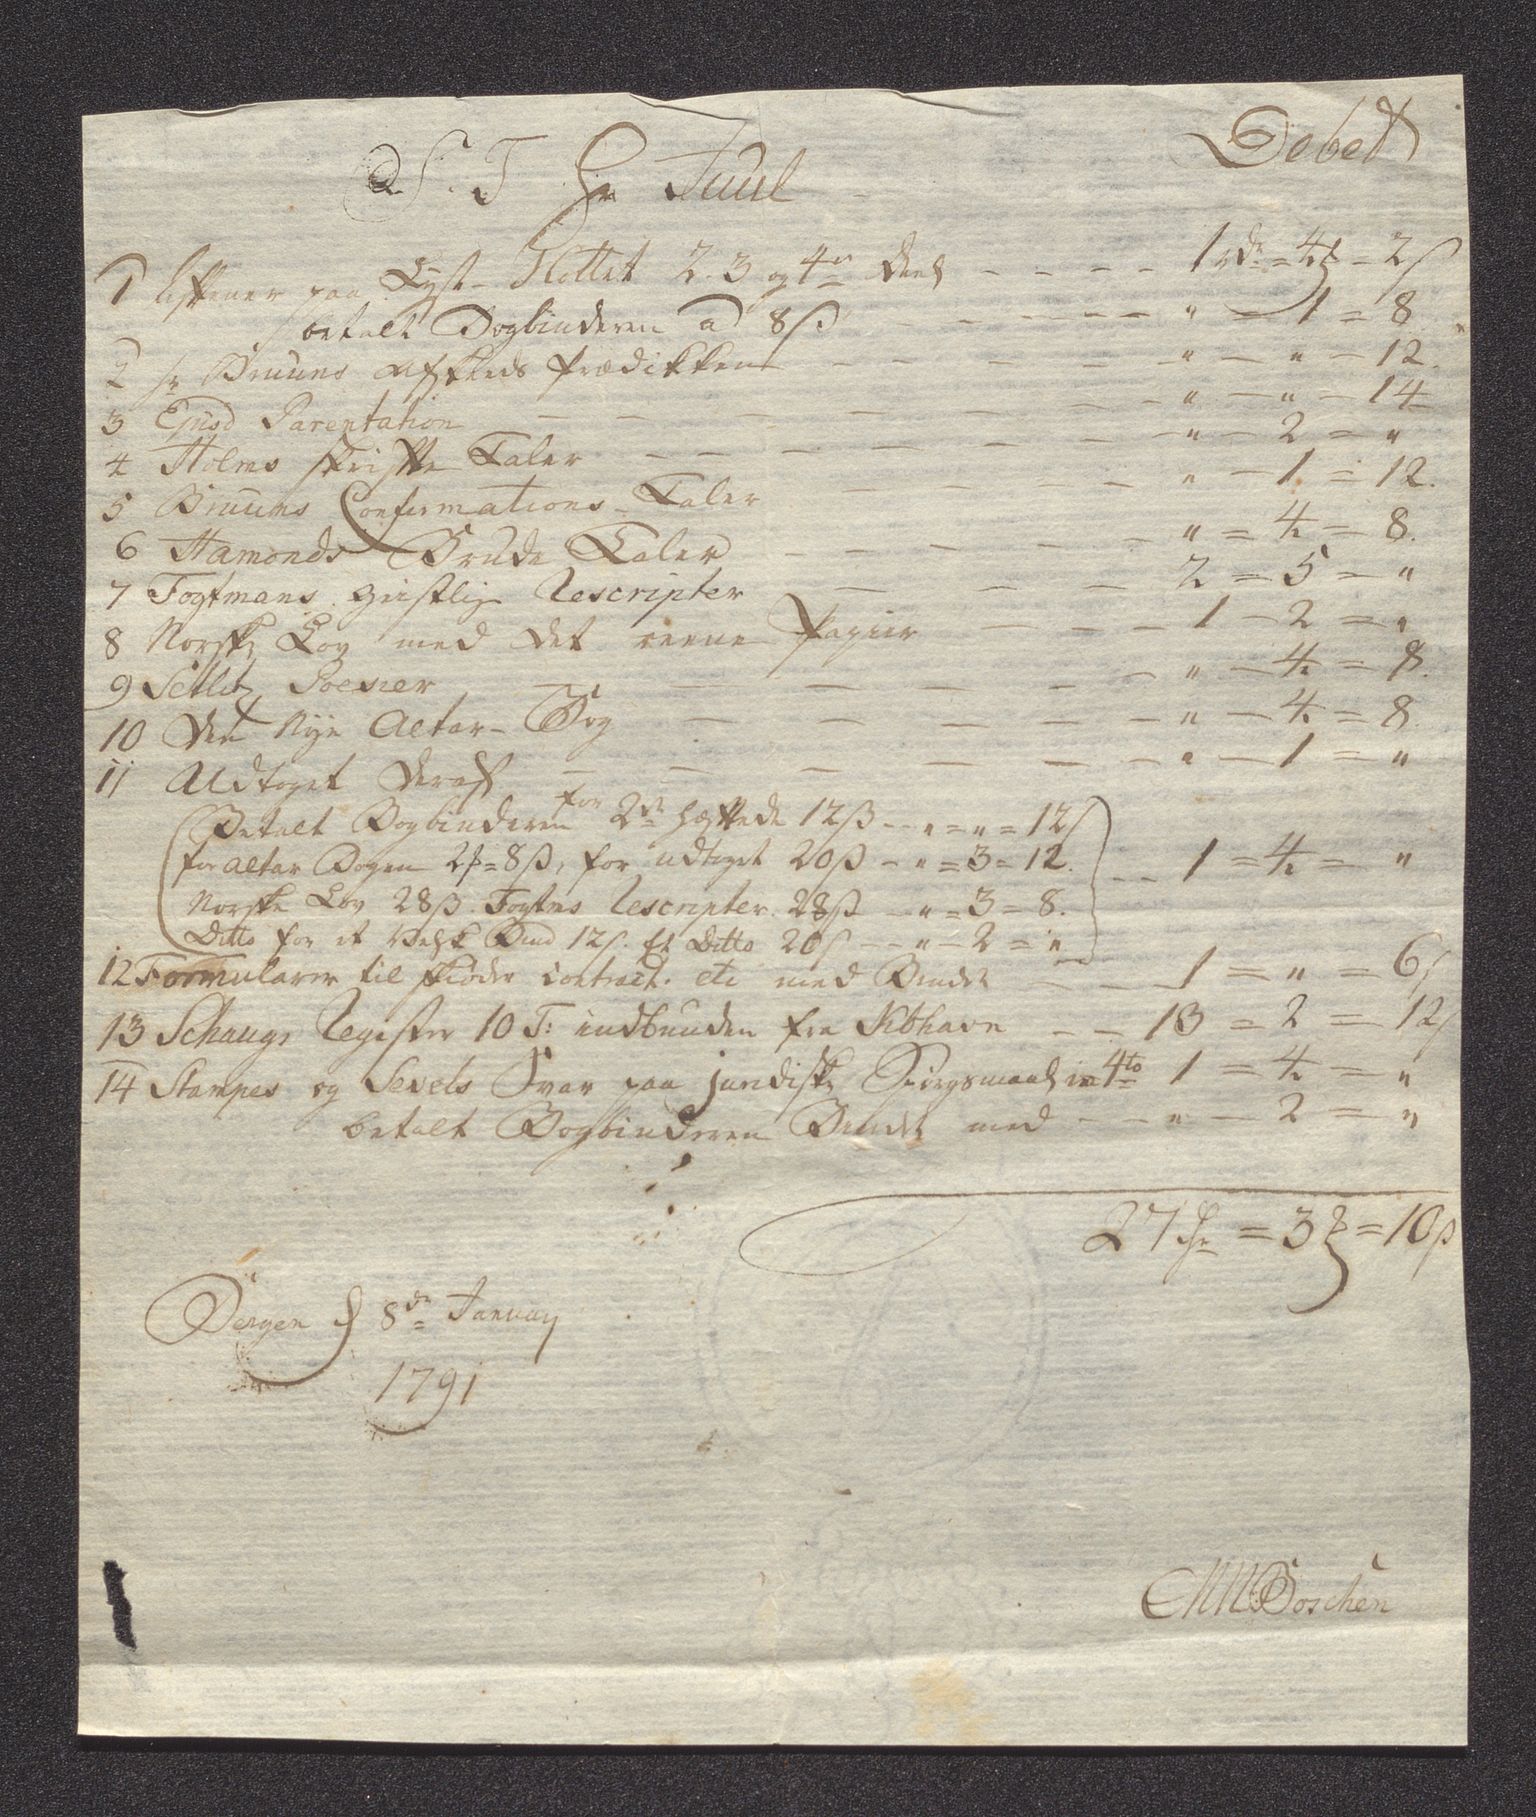 S. T. Hr Juul Debet
1 Aftener paa Lyst-Slottet 2. 3 og 4de Deel - - - - 1 rdr = 4 = 2 ß
betalt Bogbinderen a 8 ß - - - - - " = 1 = 8
2 Hr Bruuns Afskeeds Prædikken - - - - " - " - 12.
3 Ejusd Parentation - - - - - - " - " = 14
4 Holms skrifte Taler - - - - - - - " - 2 = "
5 Bruuns Confirmations-Taler - - - " - 1 = 12.
6 Hamonds Brude Taler - - - - " = 4 = 8.
7 Fogtmans geistlige Rescripter - - - 2 = 5 - "
8 Norske Lov med det reene Papiir - - - 1 - 2 = "
9 Setlitz Poesier - - - - - " - 4 = 8.
10 Den Nye Altar-Bog - - - - - " - 4 = 8.
11 Udtoget deraf - - - - - - " - 1 = "
Betalt Bogbinderen for 2de hæftede 12 ß - - " = " = 12 ß
for Altar Bogen 2 = 8 ß, for udtoget 20 ß - " = 3 = 12.
- - 1 = 4 = "
Norske Lov 28 ß. Fogtms Rescripter 28 ß - " = 3 = 8.
Ditto for et Velsk Bind 12 ß. Et Ditto 20 ß - - " - 2 = "
12 Formularer til skiøder contract. etc med Bindet - - 1 = " = 6 ß
13 Schougs Register 10 T: indbunden fra Kbhavn - - 13 = 2 = 12 ß
14 Stampes og Sevels Svar paa juridiske Spörgsmaal in 4to 1 = 4 = "
betalt Bogbinderen Bindet med - - " - 2 = "
27 = 3 = 10 ß
Bergen d 8de January
1791
Boschen